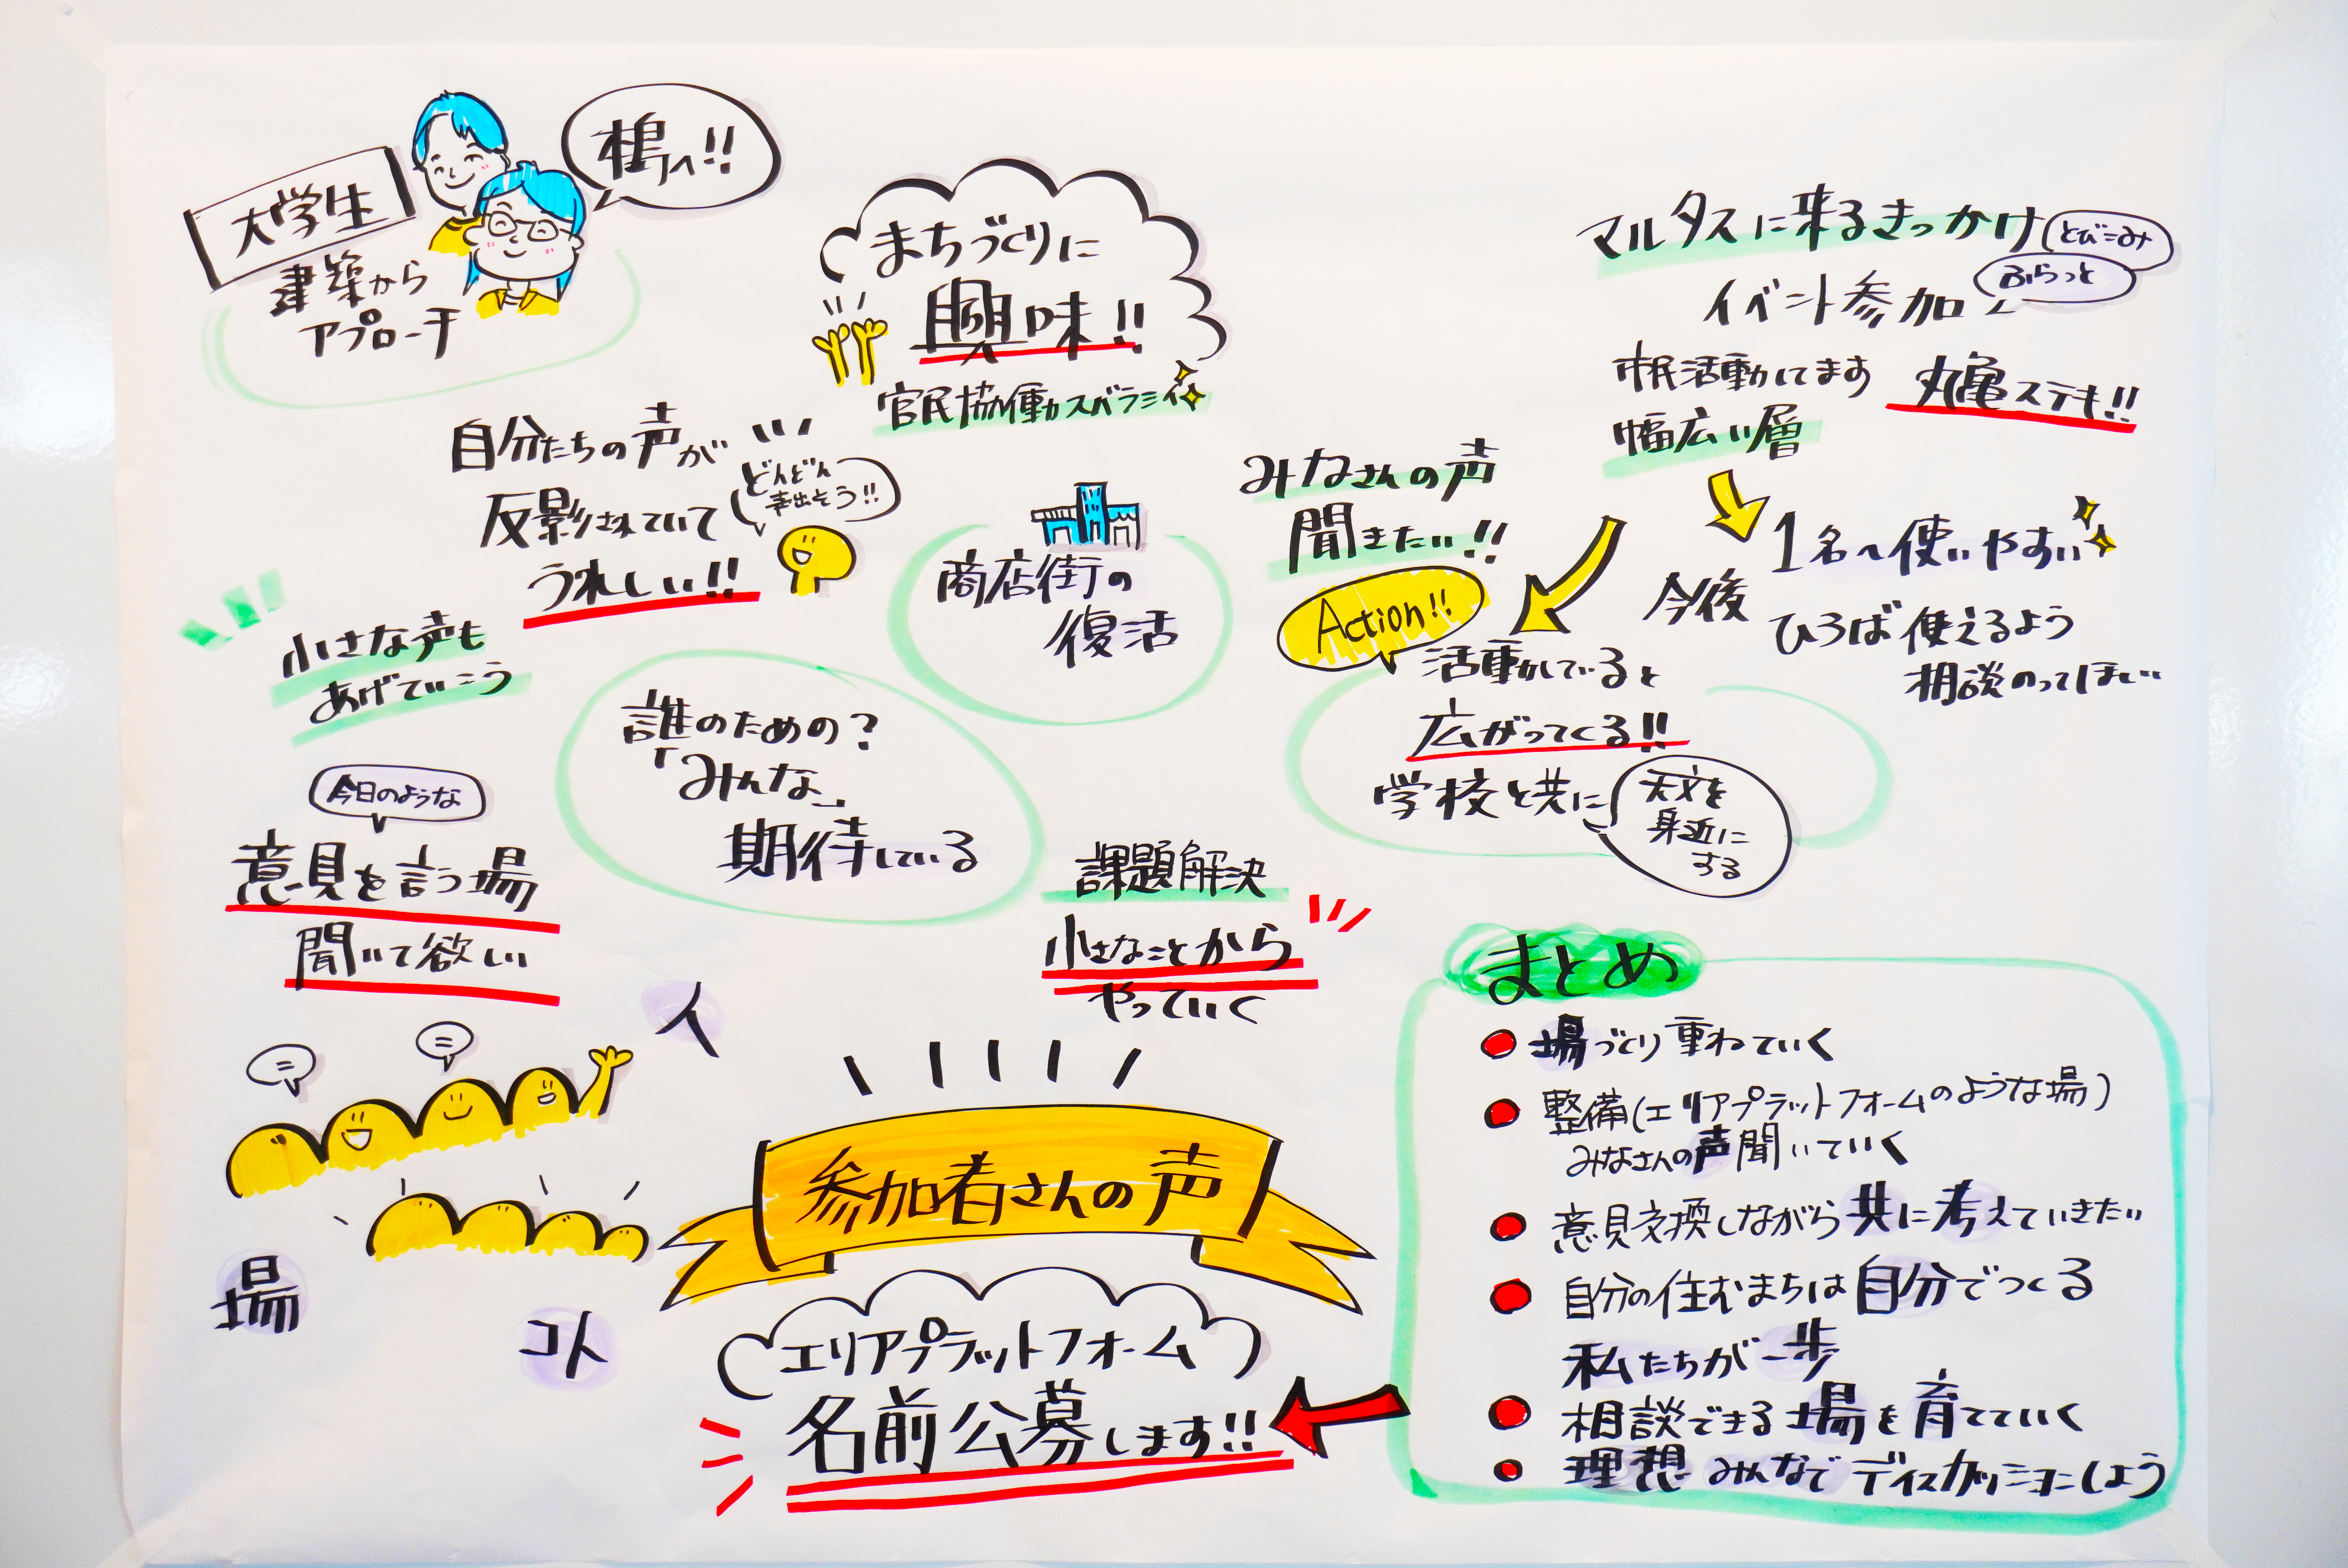 大学生
建築から
アプローチ
まちづくりに
興味!!
官民協働スバラシイ
マルタスに来るきっかけ
とびこみ
ふらっと
イベント参加
市民活動してます
丸亀ステキ!!
幅広い層
1名〜使いやすい
今後
ひろば使えるよう
相談のってほしい
自分たちの声が
反影されていて
うれしい!!
どんどん
声出そう!!
小さな声も
あげていこう
商店街の
復活
みなさんの声
聞きたい!!
Action!!
活動していると
広がってくる!!
学校と共に
天文を
身近に
する
誰のための?
「みんな」
期待している
今日のような
意見を言う場
聞いて欲しい
課題解決
小さなことから
やっていく
人
場
コト
参加者さんの声
エリアプラットフォーム
名前公募します!!
まとめ
場づくり重ねていく
整備(エリアプラットフォームのような場)
みなさんの声聞いていく
意見交換しながら共に考えていきたい
自分の住むまちは自分でつくる
私たちが一歩
相談できる場を育てていく
理想 みんなでディスカッションしよう